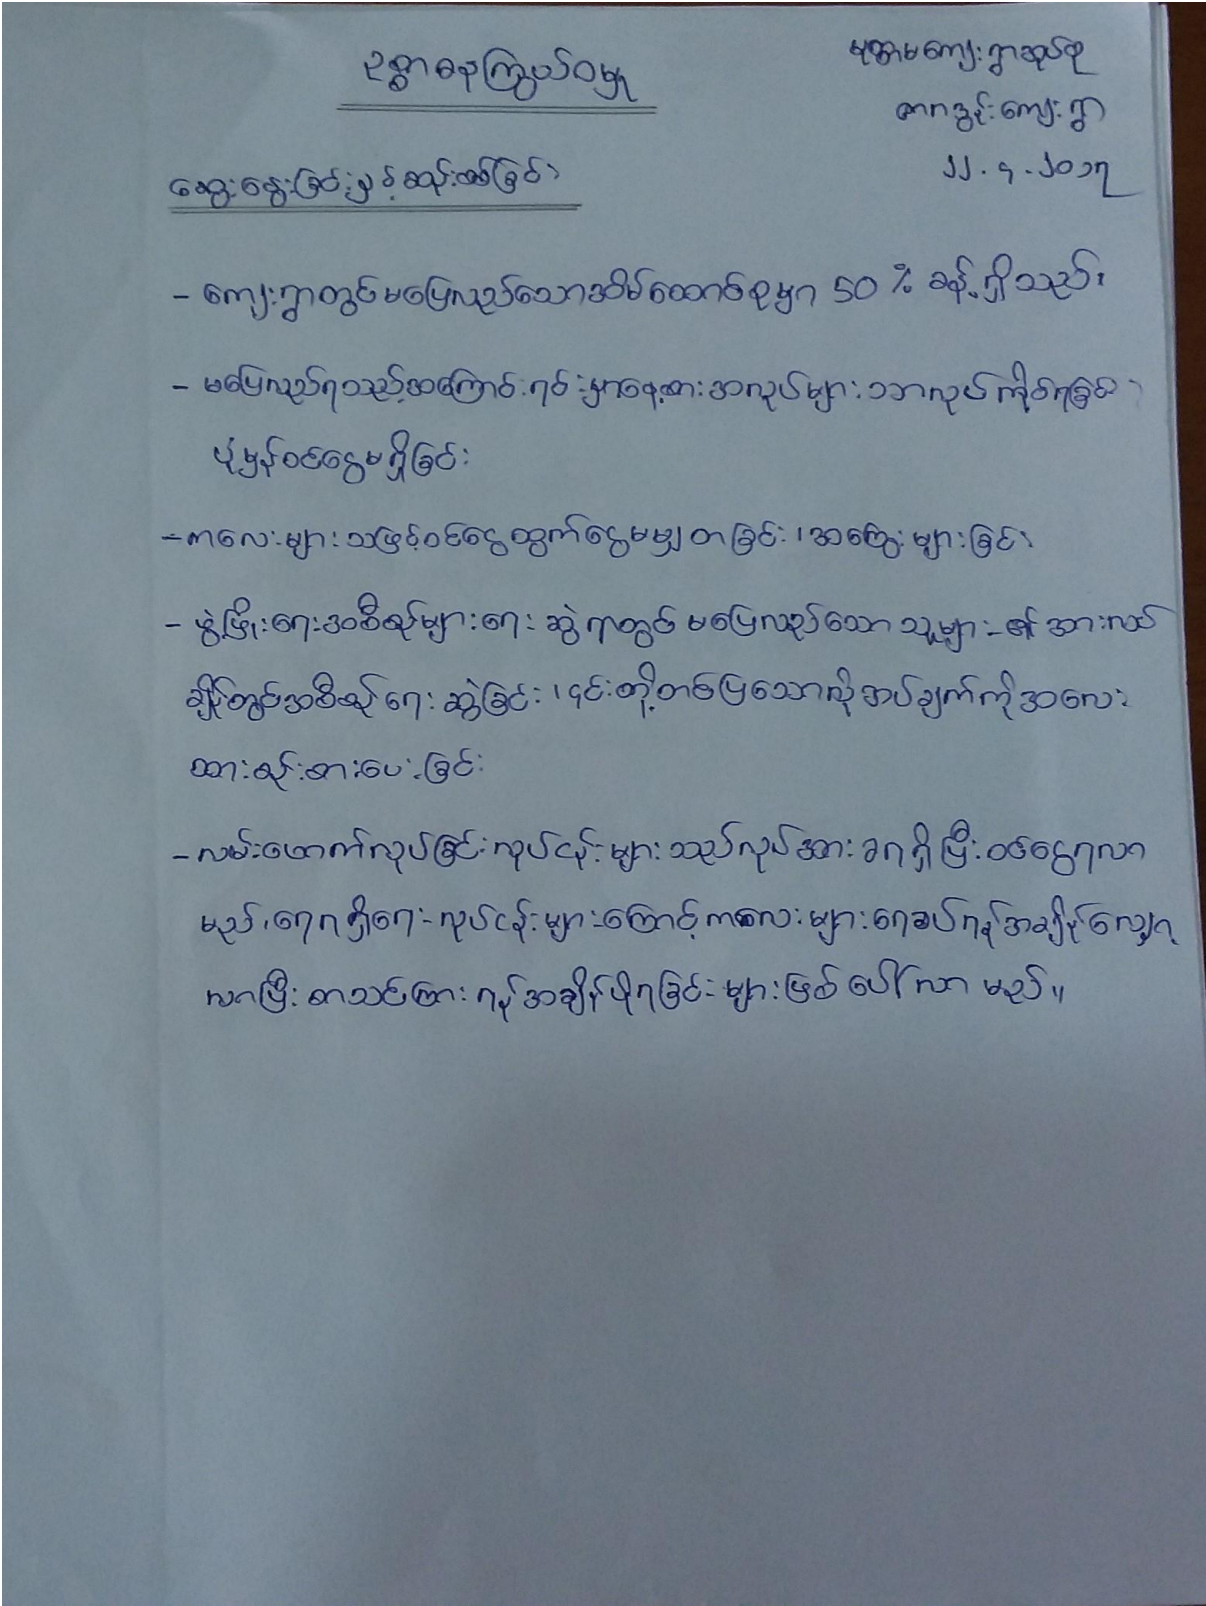 ဥစ္စာဓနကြွယ်ဝမှု
မုတ္တမကျေးရွာအုပ်စု
ဇာဂဒွန်းကျေးရွာ
၂၂.၄.၂၀၁၇
ဆွေးနွေးခြင်းနှင့်ဆန်းစစ်ခြင်း
- ကျေးရွာတွင်မပြေလည်သောအိမ်ထောင်စုမှာ 50 % ခန့်ရှိသည်၊
- မပြေလည်ရသည့်အကြောင်းရင်းမှာနေ့စားအလုပ်များသာလုပ်ကိုင်ရခြင်း၊
ပုံမှန်ဝင်ငွေမရှိခြင်း
- ကလေးများသဖြင့်ဝင်ငွေထွက်ငွေမမျှတခြင်း၊အကြွေးများခြင်း
- ဖွံ့ဖြိုးရေးအစီစဉ်များရေးဆွဲရာတွင် မပြေလည်သောသူများ၏အားလပ်
ချိန်တွင်အစီစဉ်ရေးဆွဲခြင်း၊၎င်းတို့တင်ပြသောလိုအပ်ချက်ကိုအလေး
ထားစဉ်းစားပေးခြင်း
- လမ်းဖောက်လုပ်ခြင်းလုပ်ငန်းများသည်လုပ်အားခရရှိပြီးဝင်ငွေရလာ
မည်၊ရေရရှိရေးလုပ်ငန်းများကြောင့်ကလေးများရေခပ်ရန်အချိန်လျှော့
လာပြီးစာသင်ကြားရန်အချိန်ပိုရခြင်းများဖြစ်ပေါ်လာမည်။